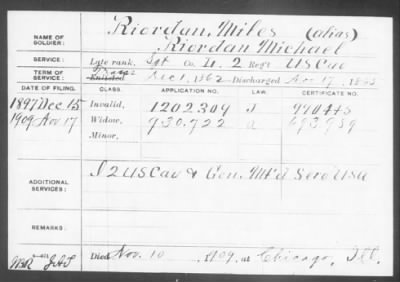 NAME OF SOLDIER: Riordan, Miles (alias)
Riordan Michael
SERVICE: Late rank, Sgt Co. D. 2 Reg't US Cav
TERM OF SERVICE: Enlisted Dec 1, 1862 Discharged Nov 17, 1865
DATE OF FILING. CLASS. APPLICATION NO. LAW. CERTIFICATE NO.
1897 Dec 15 Invalid, 1202309 J 970445
1909 Nov 17 Widow, 930.722 693939
Minor,
ADDITIONAL SERVICES: 2 US Cav & Gen. Mt'd Serv USA
REMARKS:
Died Nov. 10, 1909, at Chicago, Ill.